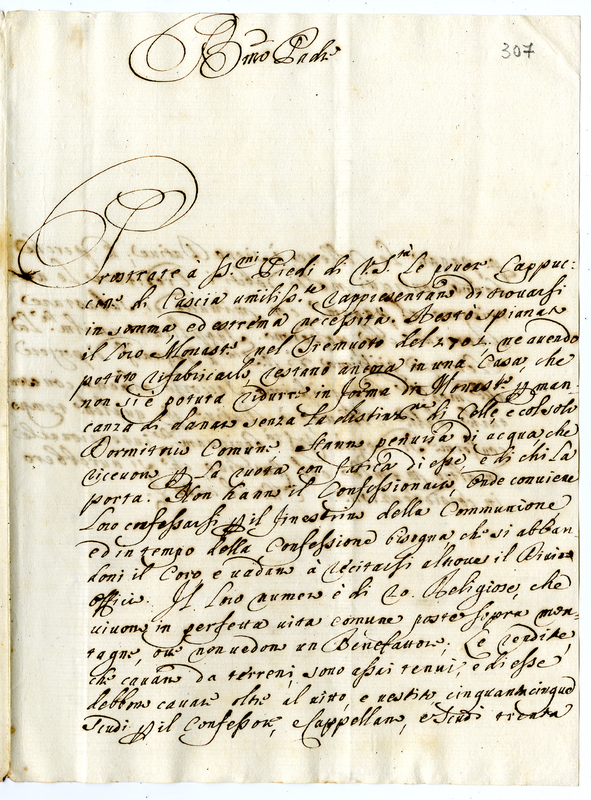 307
B.mo Padre
Prostrate à SS.mi Piedi di V. S.tà Le povere Cappuc:
cine di Cascia umiliss.te rappresentano di trovarsi
in somma, ed estrema necessità. Restò spianato
il loro Monast.o nel Tremuoto del 1702, ne avendo
potuto rifabricarlo, restano ancora in una Casa, che
non si è potuta ridurre in forma di Monast.o p man-
canza di danaro senza la distinz.ne di Celle, e col solo
Dormitorio Comune. Fanno penuria di acqua, che
ricevono p la ruota con fatica di esse, e di chi la
porta. Non hanno il Confessionario, onde conviene
loro confessarsi p il finestrino della Communione
ed in tempo della Confessione bisogna, che si abban-
doni il Coro e vadano à recitarsi altrove il Divino
Offizio. Il loro numero è di 20. Religiose, che
vivono in perfetta vita comune poste sopra mon-
tagne, ove non vedono un Benefattore; Le rendite,
che cavano da terreni, sono assai tenui, e di esse
debbono cavare oltre al vitto, e vestito, cinquantacinque
Scudi p il Confessore, e Cappellano, e Scudi trenta